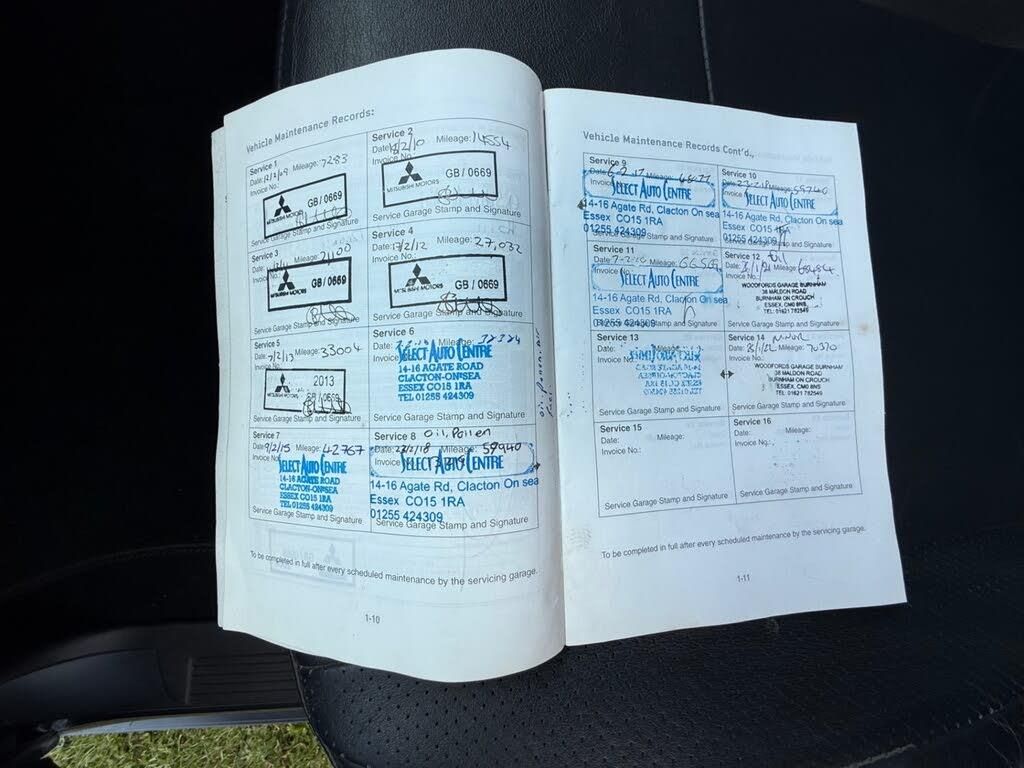 Vehicle Maintenance Records:
Service 1
Date: 12/2/09 Mileage: 7283
Invoice No.:
MITSUBISHI MOTORS GB / 0669
Service Garage Stamp and Signature
Service 2
Date: 18/2/10 Mileage: 14554
Invoice No.:
MITSUBISHI MOTORS GB / 0669
Service Garage Stamp and Signature
Service 3
Date: Mileage: 21100
Invoice No.:
MITSUBISHI MOTORS GB / 0669
Service Garage Stamp and Signature
Service 4
Date: 17/2/12 Mileage: 27,032
Invoice No.:
MITSUBISHI MOTORS GB / 0669
Service Garage Stamp and Signature
Service 5
Date: 7/2/13 Mileage: 33004
Invoice No.:
2013
MITSUBISHI MOTORS GB / 0669
Service Garage Stamp and Signature
Service 6
Date: Mileage:
Invoice No.
SELECT AUTO CENTRE
14-16 AGATE ROAD
CLACTON-ON-SEA
ESSEX CO15 1RA
TEL 01255 424309
Service Garage Stamp and Signature
Service 7
Date: 9/2/15 Mileage: 42767
Invoice No.
SELECT AUTO CENTRE
14-16 AGATE ROAD
CLACTON-ON-SEA
ESSEX CO15 1RA
TEL 01255 424309
Service Garage Stamp and Signature
Service 8 Oil, Pollen
Date: Mileage: 59940
Invoice
SELECT AUTO CENTRE
14-16 Agate Rd, Clacton On sea
Essex CO15 1RA
01255 424309
Service Garage Stamp and Signature
oil, pollen, air
fuel.
To be completed in full after every scheduled maintenance by the servicing garage.
1-10
Vehicle Maintenance Records Cont'd.,
Service 9
Date: Mileage:
Invoice
SELECT AUTO CENTRE
14-16 Agate Rd, Clacton On sea
Essex CO15 1RA
01255 424309
Service Garage Stamp and Signature
Service 10
Date: Mileage: 59740
Invoice
SELECT AUTO CENTRE
14-16 Agate Rd, Clacton On sea
Essex CO15 1RA
01255 424309
Service Garage Stamp and Signature
Service 11
Date: 7-2-20 Mileage:
Invoice No.
SELECT AUTO CENTRE
14-16 Agate Rd, Clacton On sea
Essex CO15 1RA
01255 424309
Service Garage Stamp and Signature
Service 12 Oil
Date: Mileage: 68484
Invoice No.:
WOODFORDS GARAGE BURNHAM
38 MALDON ROAD
BURNHAM ON CROUCH
ESSEX, CM0 8NS
TEL: 01621 782549
Service Garage Stamp and Signature
Service 13
Date: Mileage:
Invoice No.:
Service Garage Stamp and Signature
Service 14
Date: Mileage: 70370
Invoice No.:
WOODFORDS GARAGE BURNHAM
38 MALDON ROAD
BURNHAM ON CROUCH
ESSEX, CM0 8NS
TEL: 01621 782549
Service Garage Stamp and Signature
Service 15
Date: Mileage:
Invoice No.:
Service Garage Stamp and Signature
Service 16
Date: Mileage:
Invoice No.:
Service Garage Stamp and Signature
To be completed in full after every scheduled maintenance by the servicing garage.
1-11